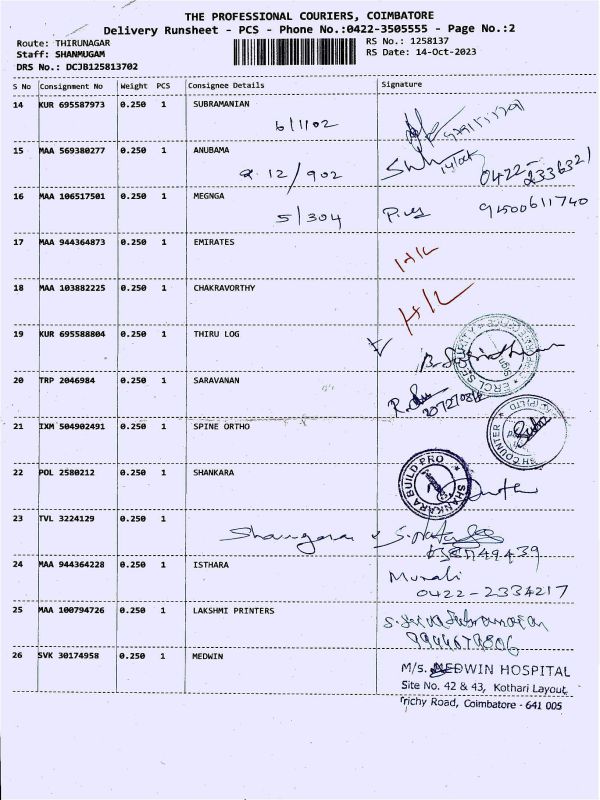 THE PROFESSIONAL COURIERS, COIMBATORE
Delivery Runsheet - PCS - Phone No.:0422-3505555 - Page No.:2
Route: THIRUNAGAR RS No.: 1258137
Staff: SHANMUGAM RS Date: 14-Oct-2023
DRS No.: DCJB125813702
S No Consignment No Weight PCS Consignee Details Signature
14 KUR 695587973 0.250 1 SUBRAMANIAN
6/1102
15 MAA 569380277 0.250 1 ANUBAMA
12/902 0422-2336321
16 MAA 106517501 0.250 1 MEGNGA
5/304 9500611740
17 MAA 944364873 0.250 1 EMIRATES
H/L
18 MAA 103882225 0.250 1 CHAKRAVORTHY
H/L
19 KUR 695588804 0.250 1 THIRU LOG
20 TRP 2046984 0.250 1 SARAVANAN
21 IXM 504902491 0.250 1 SPINE ORTHO
22 POL 2580212 0.250 1 SHANKARA
SHANKARA BUILD PRO
23 TVL 3224129 0.250 1
24 MAA 944364228 0.250 1 ISTHARA
Murali
0422-2334217
25 MAA 100794726 0.250 1 LAKSHMI PRINTERS
26 SVK 30174958 0.250 1 MEDWIN
M/s. MEDWIN HOSPITAL
Site No. 42 & 43, Kothari Layout,
Trichy Road, Coimbatore - 641 005